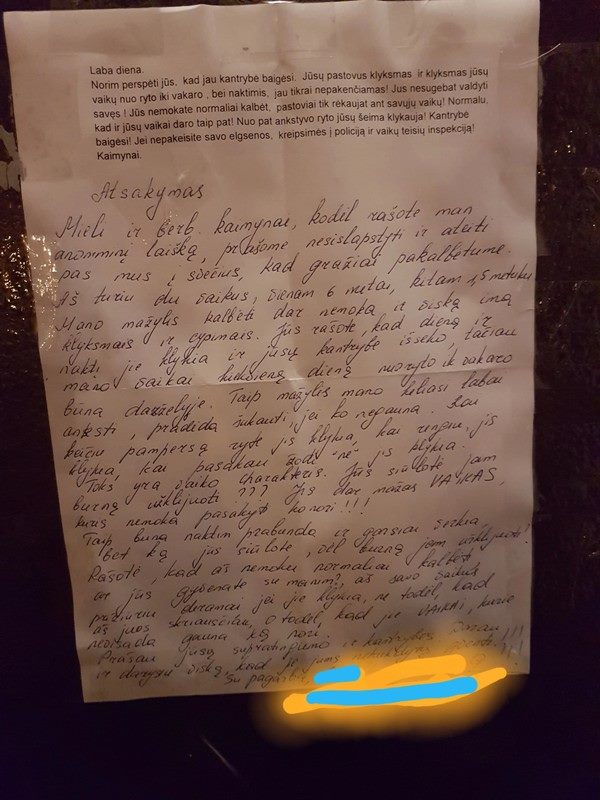 Laba diena.
Norim perspėti jūs, kad jau kantrybė baigėsi. Jūsų pastovus klyksmas ir klyksmas jūsų
vaikų nuo ryto iki vakaro , bei naktimis, jau tikrai nepakenčiamas! Jus nesugebat valdyti
savęs ! Jūs nemokate normaliai kalbėt, pastoviai tik rėkaujat ant savųjų vaikų! Normalu,
kad ir jūsų vaikai daro taip pat! Nuo pat ankstyvo ryto jūsų šeima klykauja! Kantrybė
baigėsi! Jei nepakeisite savo elgsenos, kreipsimės į policiją ir vaikų teisių inspekciją!
Kaimynai.
Atsakymas
Mieli ir gerb. kaimynai, kodėl rašote man
anoniminį laišką, prašome nesislapstyti ir ateiti
pas mus į svečius, kad gražiai pakalbėtume.
Aš turiu du vaikus, vienam 6 metai, kitam 1,5 metukų
Mano mažylis kalbėti dar nemoka ir viską ima
klyksmais ir cypimais. Jūs rašote, kad dieną ir
naktį jie klykia ir jūsų kantrybė išseko, tačiau
mano vaikai kiekvieną dieną nuo ryto ik vakaro
būna darželyje. Taip mažylis mano keliasi labai
anksti, pradeda šūkauti, jei ko negauna. Kai
keičiu pampersą ryte jis klykia, kai rengiu, jis
klykia, kai pasakau žodį "ne" jis klykia.
Toks yra vaiko charakteris. Jūs siūlote jam
burną užklijuoti ??? Jis dar mažas VAIKAS,
kuris nemoka pasakyti ko nori !!!
Taip būna naktim prabunda ir garsiai verkia,
bet ką jūs siūlote, vėl burną jam užklijuoti?
Rašote, kad aš nemoku normaliai kalbėti
ar jūs gyvenate su manimi, aš savo vaikus
prižiūriu deramai jei jie klykia, ne todėl, kad
aš juos skriausčiau, o todėl, kad jie VAIKAI, kurie
nevisada gauna ką nori.
Prašau jūsų supratingumo ir kantrybės
ir darysiu viską, kad jie jums
Su pagarba